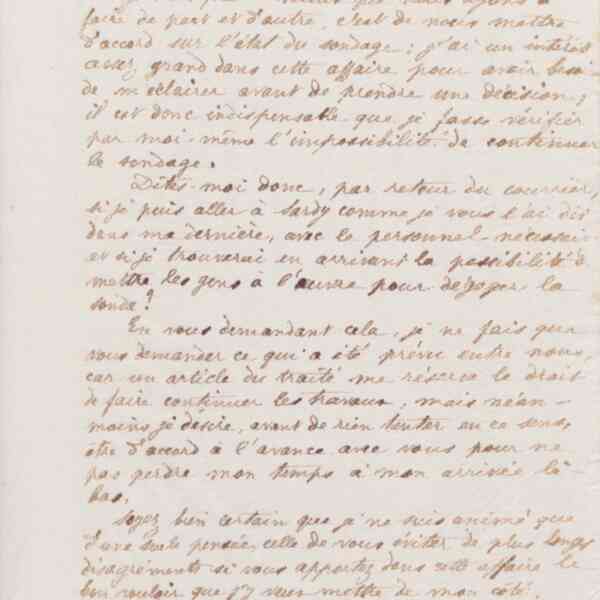 faire de part et d'autre, c'est de nous mettre
d'accord sur l'état du sondage; j'ai un intérêt
assez grand dans cette affaire pour avoir besoi-
de m'éclairer avant de prendre une décision;
il est donc indispensable que je fasse vérifier
par moi-même l'impossibilité de continuer
le sondage.
Dites-moi donc, par retour du courrier,
si je puis aller à Sardy comme je vous l'ai dit
dans ma dernière, avec le personnel nécessai-
et si je trouverai en arrivant la possibilité d
mettre les gens à l'œuvre pour dégager la
sonde?
En vous demandant cela, je ne fais que
vous demander ce qui a été prévu entre nous,
car un article du traité me réserve le droit
de faire continuer les travaux, mais néan-
moins je désire, avant de rien tenter en ce sens,
être d'accord à l'avance avec vous pour ne
pas perdre mon temps à mon arrivée là-
bas.
Soyez bien certain que je ne suis animé que
d'une seule pensée, celle de vous éviter de plus longs
désagréments si vous apportez dans cette affaire le
bon vouloir que j'y veux mettre de mon côté.